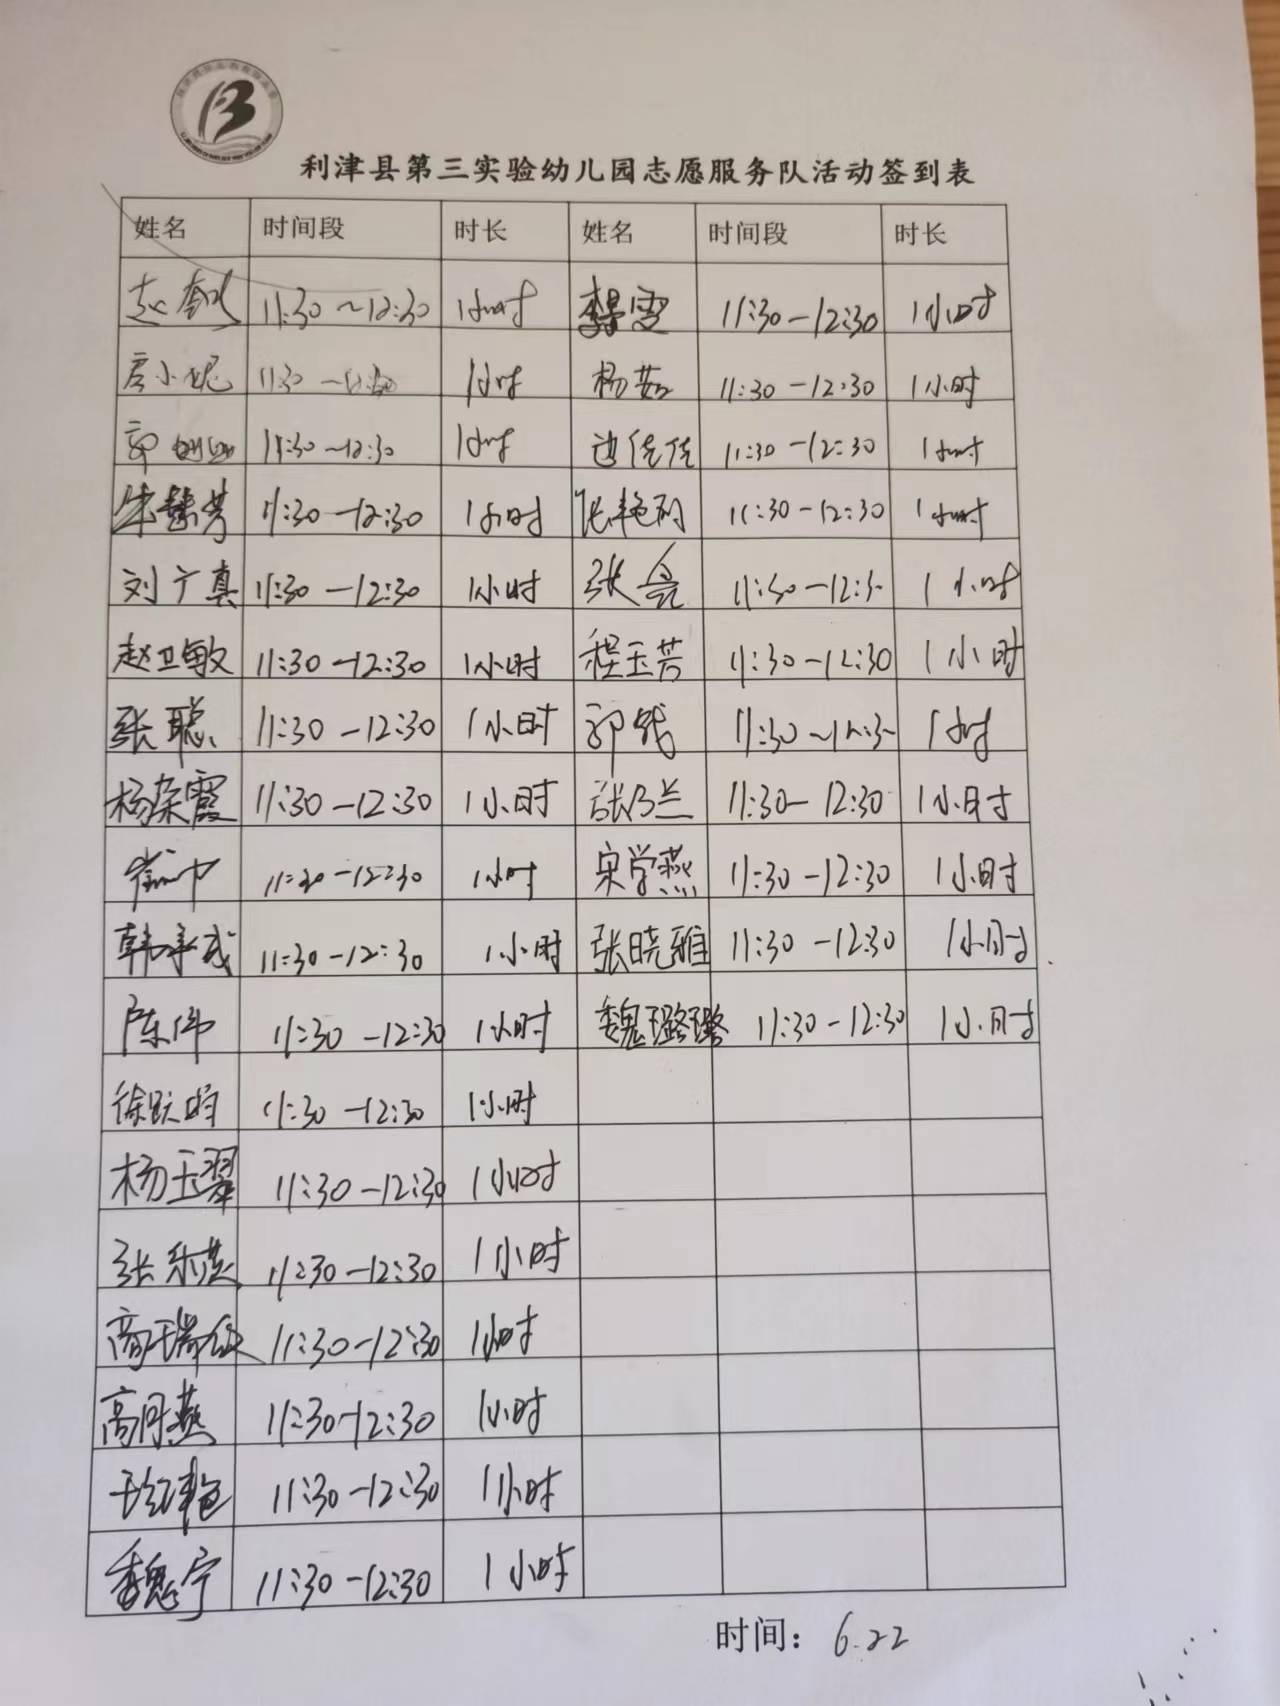 利津县第三实验幼儿园志愿服务队活动签到表
姓名 时间段 时长 姓名 时间段 时长
赵 11:30~12:30 1小时 李雯 11:30-12:30 1小时
小妮 11:30-12:30 1小时 杨茹 11:30-12:30 1小时
郭 11:30-12:30 1小时 边佳佳 11:30-12:30 1小时
朱慧芳 11:30-12:30 1小时 张艳丽 11:30-12:30 1小时
刘广真 11:30-12:30 1小时 张 11:30-12:3 1小时
赵卫敏 11:30-12:30 1小时 程玉芳 11:30-12:30 1小时
张聪 11:30-12:30 1小时 郭 11:30~12:3 1小时
杨荣霞 11:30-12:30 1小时 张乃兰 11:30-12:30 1小时
崔 11:30-12:30 1小时 宋学燕 11:30-12:30 1小时
韩 11:30-12:30 1小时 张晓雅 11:30-12:30 1小时
陈伟 11:30-12:30 1小时 魏璐璐 11:30-12:30 1小时
徐跃 11:30-12:30 1小时
杨玉翠 11:30-12:30 1小时
张乐燕 11:30-12:30 1小时
高瑞 11:30-12:30 1小时
高月燕 11:30-12:30 1小时
王红艳 11:30-12:30 1小时
魏宁 11:30-12:30 1小时
时间：6.22